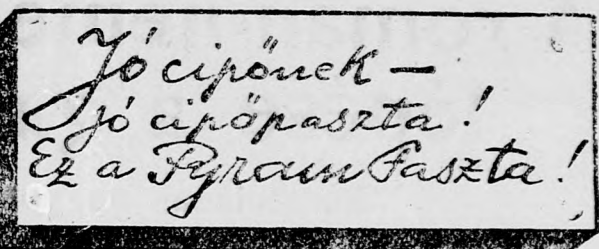 Jó cipőnek –
jó cipőpaszta!
Ez a Pyram Paszta!